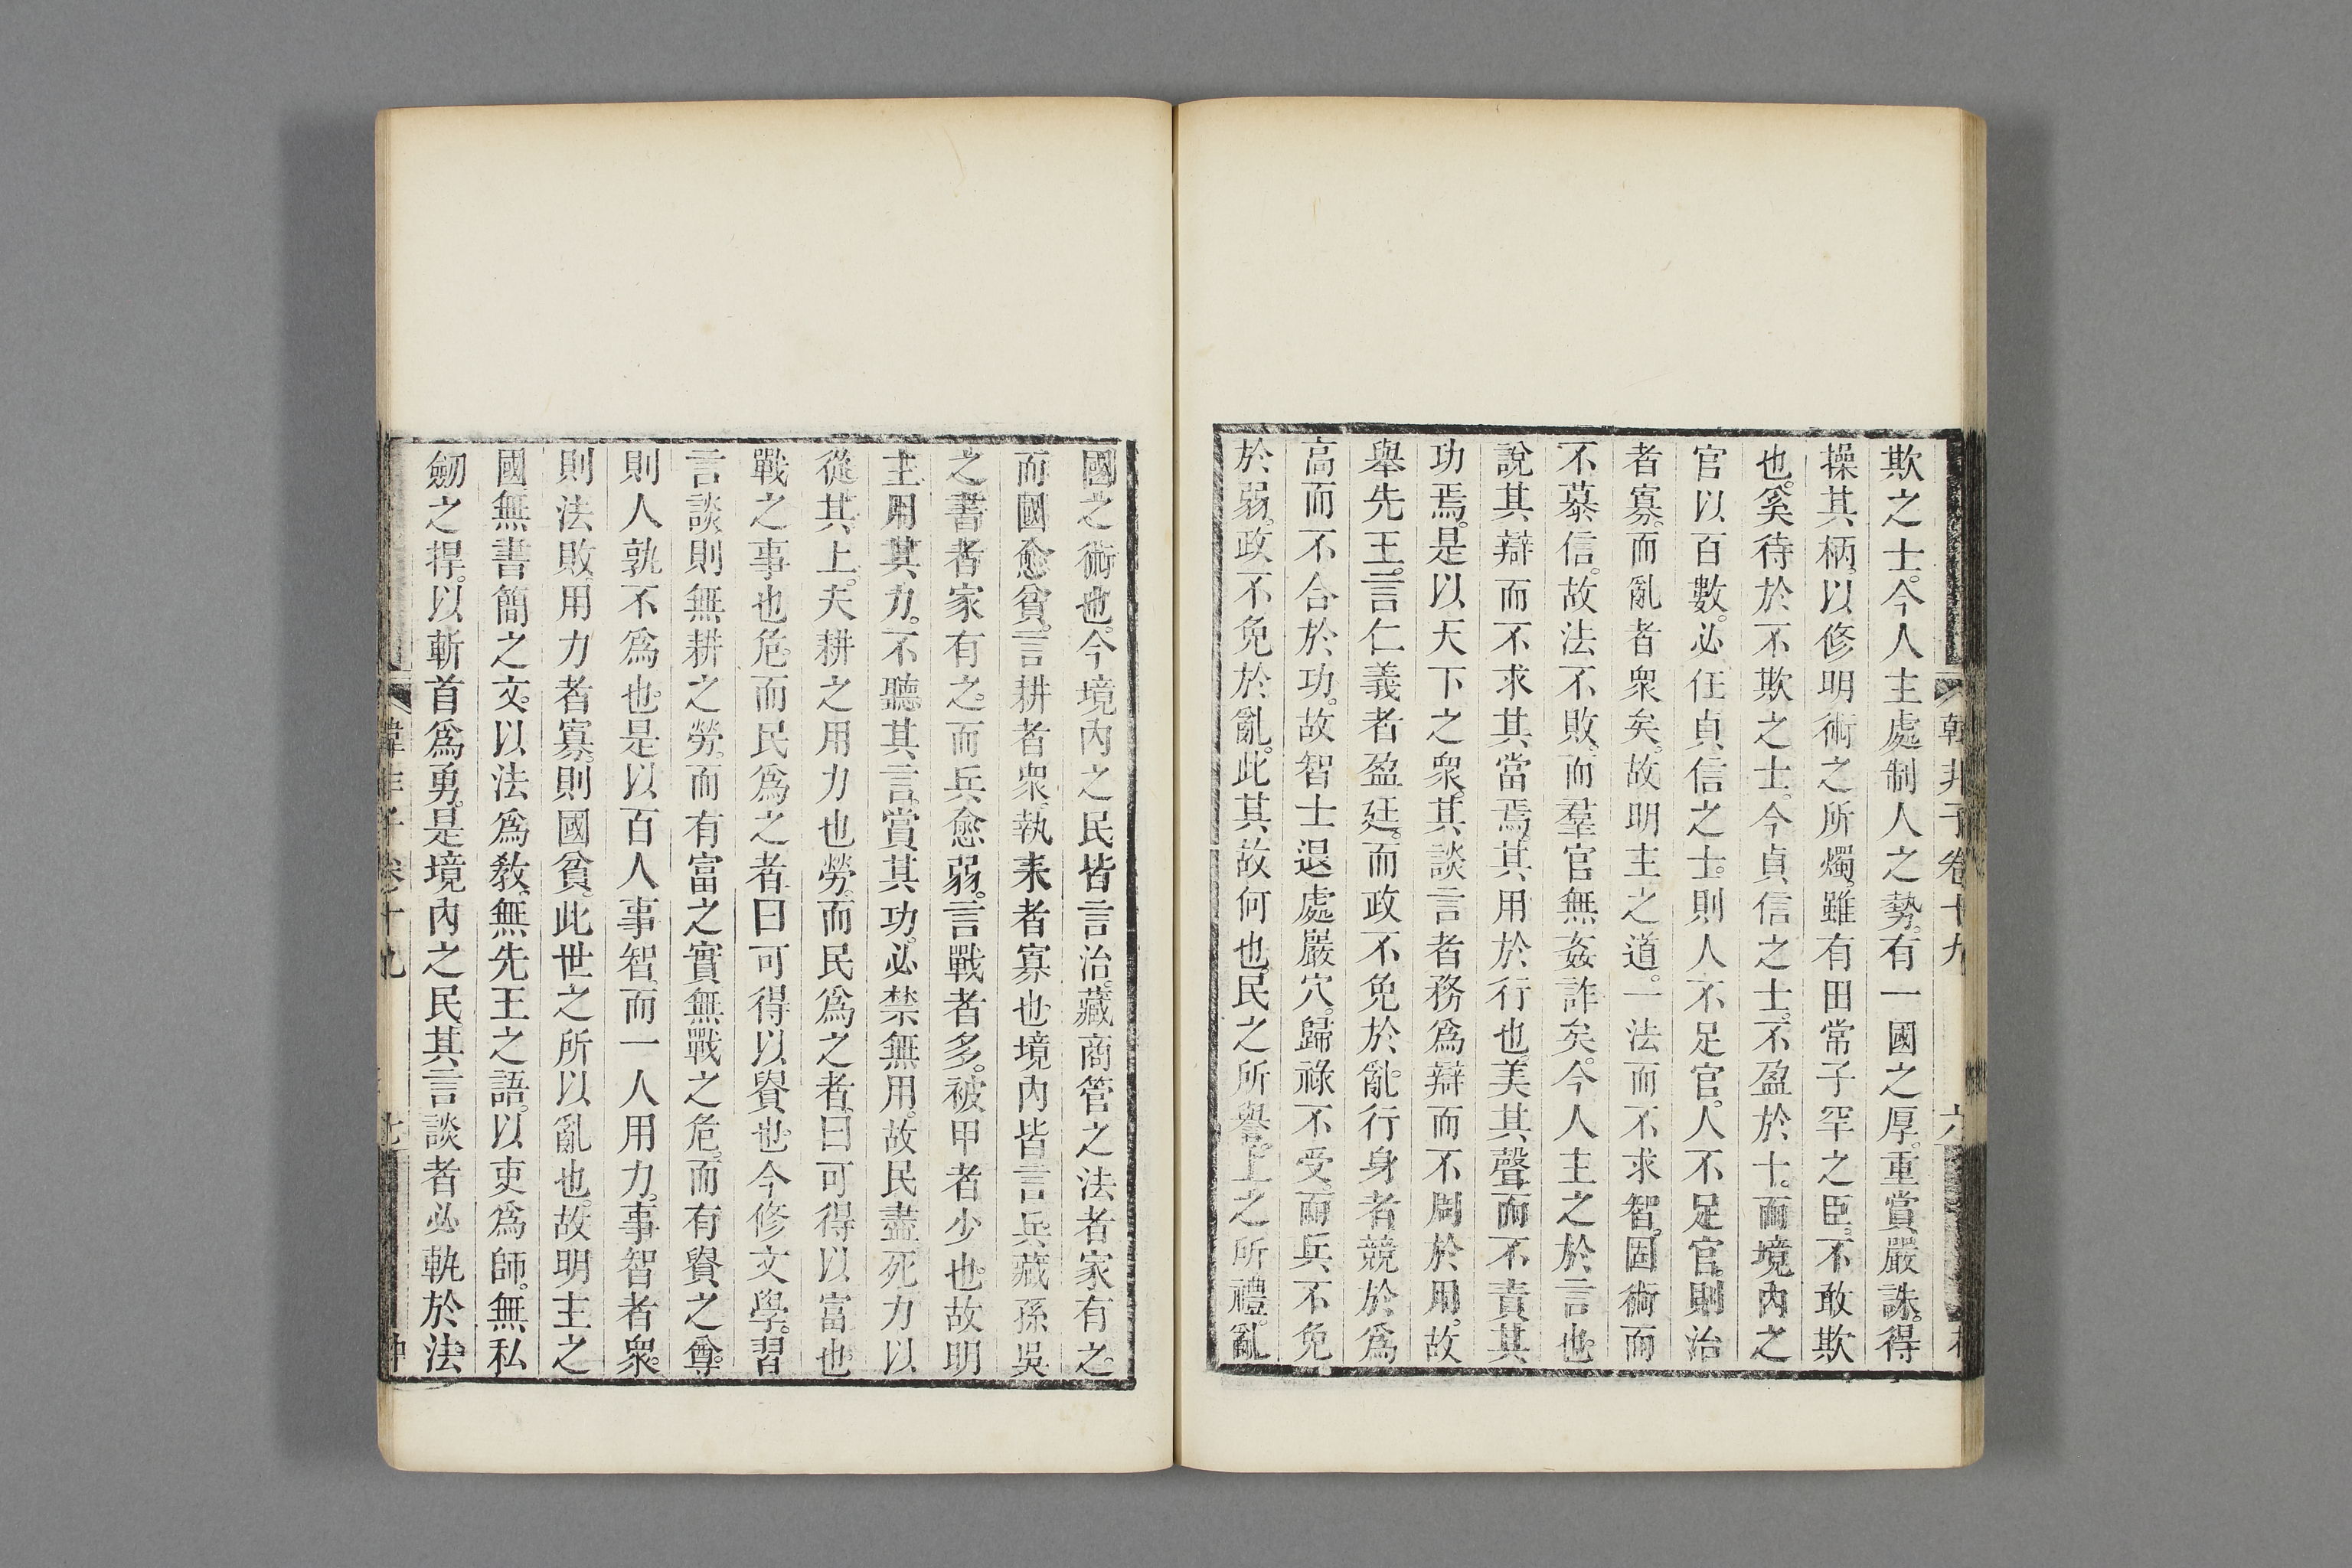 韓非子卷十九
六
欺之士。今人主處制人之勢。有一國之厚。重賞嚴誅。得
操其柄。以修明術之所燭。雖有田常子罕之臣。不敢欺
也。奚待於不欺之士。今貞信之士。不盈於十。而境內之
官以百數。必任貞信之士。則人不足官。人不足官。則治
者寡。而亂者衆矣。故明主之道。一法而不求智。固術而
不慕信。故法不敗。而羣官無姦詐矣。今人主之於言也。
說其辯而不求其當焉。其用於行也。美其聲而不責其
功焉。是以天下之衆。其談言者務爲辯而不周於用。故
舉先王。言仁義者盈廷。而政不免於亂。行身者競於爲
高而不合於功。故智士退處巖穴。歸祿不受。而兵不免
於弱。政不免於亂。此其故何也。民之所譽。上之所禮。亂
國之術也。今境內之民皆言治。藏商管之法者家有之。
而國愈貧。言耕者衆。執耒者寡也。境內皆言兵。藏孫吳
之書者家有之。而兵愈弱。言戰者多。被甲者少也。故明
主用其力。不聽其言。賞其功。必禁無用。故民盡死力以
從其上。夫耕之用力也勞。而民爲之者。曰可得以富也。
戰之事也危。而民爲之者。曰可得以貴也。今修文學。習
言談。則無耕之勞。而有富之實。無戰之危。而有貴之尊。
則人孰不爲也。是以百人事智。而一人用力。事智者衆。
則法敗。用力者寡。則國貧。此世之所以亂也。故明主之
國無書簡之文。以法爲教。無先王之語。以吏爲師。無私
劒之捍。以斬首爲勇。是境內之民。其言談者必軌於法
韓非子卷十九
七